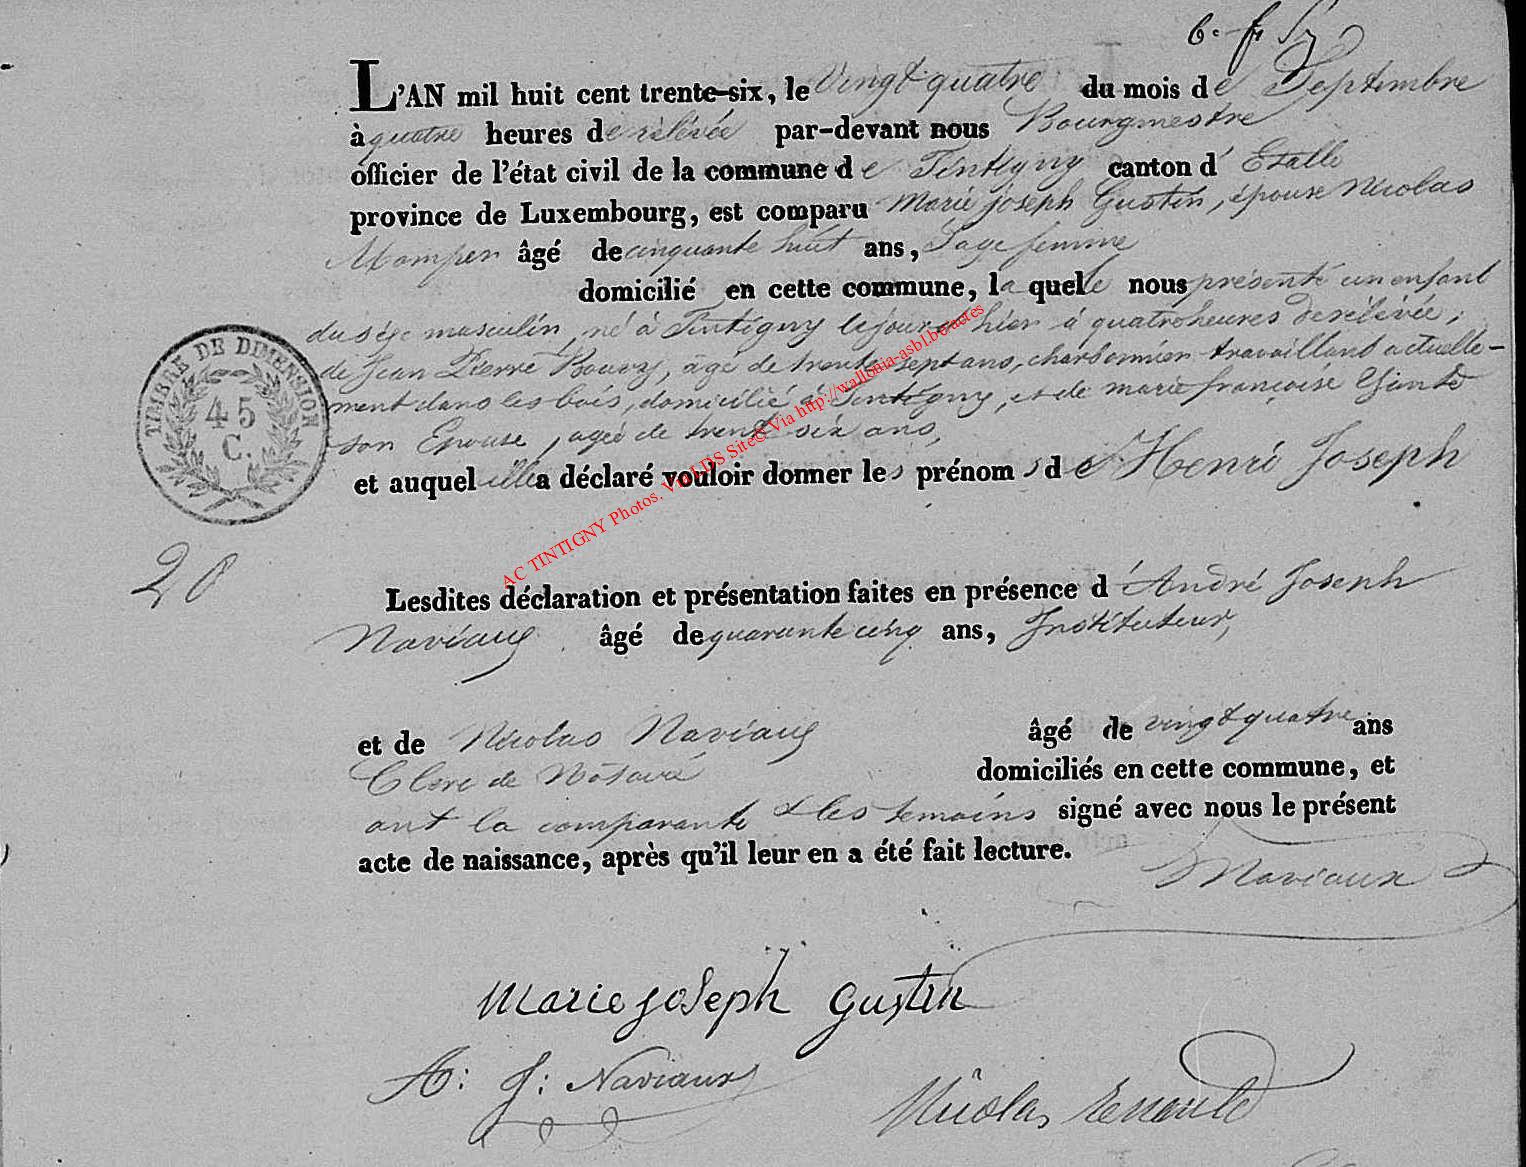 L'AN mil huit cent trente-six, le Vingt quatre du mois de Septembre
à quatre heures de rélévée par-devant nous Bourgmestre
officier de l'état civil de la commune de Tintigny canton d' Etalle
province de Luxembourg, est comparu Marie joseph Gustin, épouse Nicolas
âgé de cinquante huit ans, Sage femme
domicilié en cette commune, la quelle nous présenté un enfant
du séxe masculin, né à Tintigny le jour d'hier à quatre heures de rélévée,
de Jean Pierre âgé de trente sept ans, charbonnier travaillant actuelle-
ment dans les bois, domicilié à Tintigny, et de marie françoise
son Epouse, agée de trente six ans,
et auquel elle a déclaré vouloir donner les prénoms de Henri Joseph
TIMBRE DE DIMENSION
45
C.
20
Lesdites déclaration et présentation faites en présence d'André Joseph
Naviaux âgé de quarante cinq ans, Instituteur,
et de Nicolas Naviaux âgé de vingt quatre ans
Clerc de domiciliés en cette commune, et
ont la comparante & les temoins signé avec nous le présent
acte de naissance, après qu'il leur en a été fait lecture.
Naviaux
Marie joseph gustin
A: J: Naviaux
Nicolas
AC TINTIGNY Photos. Via LDS Site© Via http://wallonia-asbl.be/actes